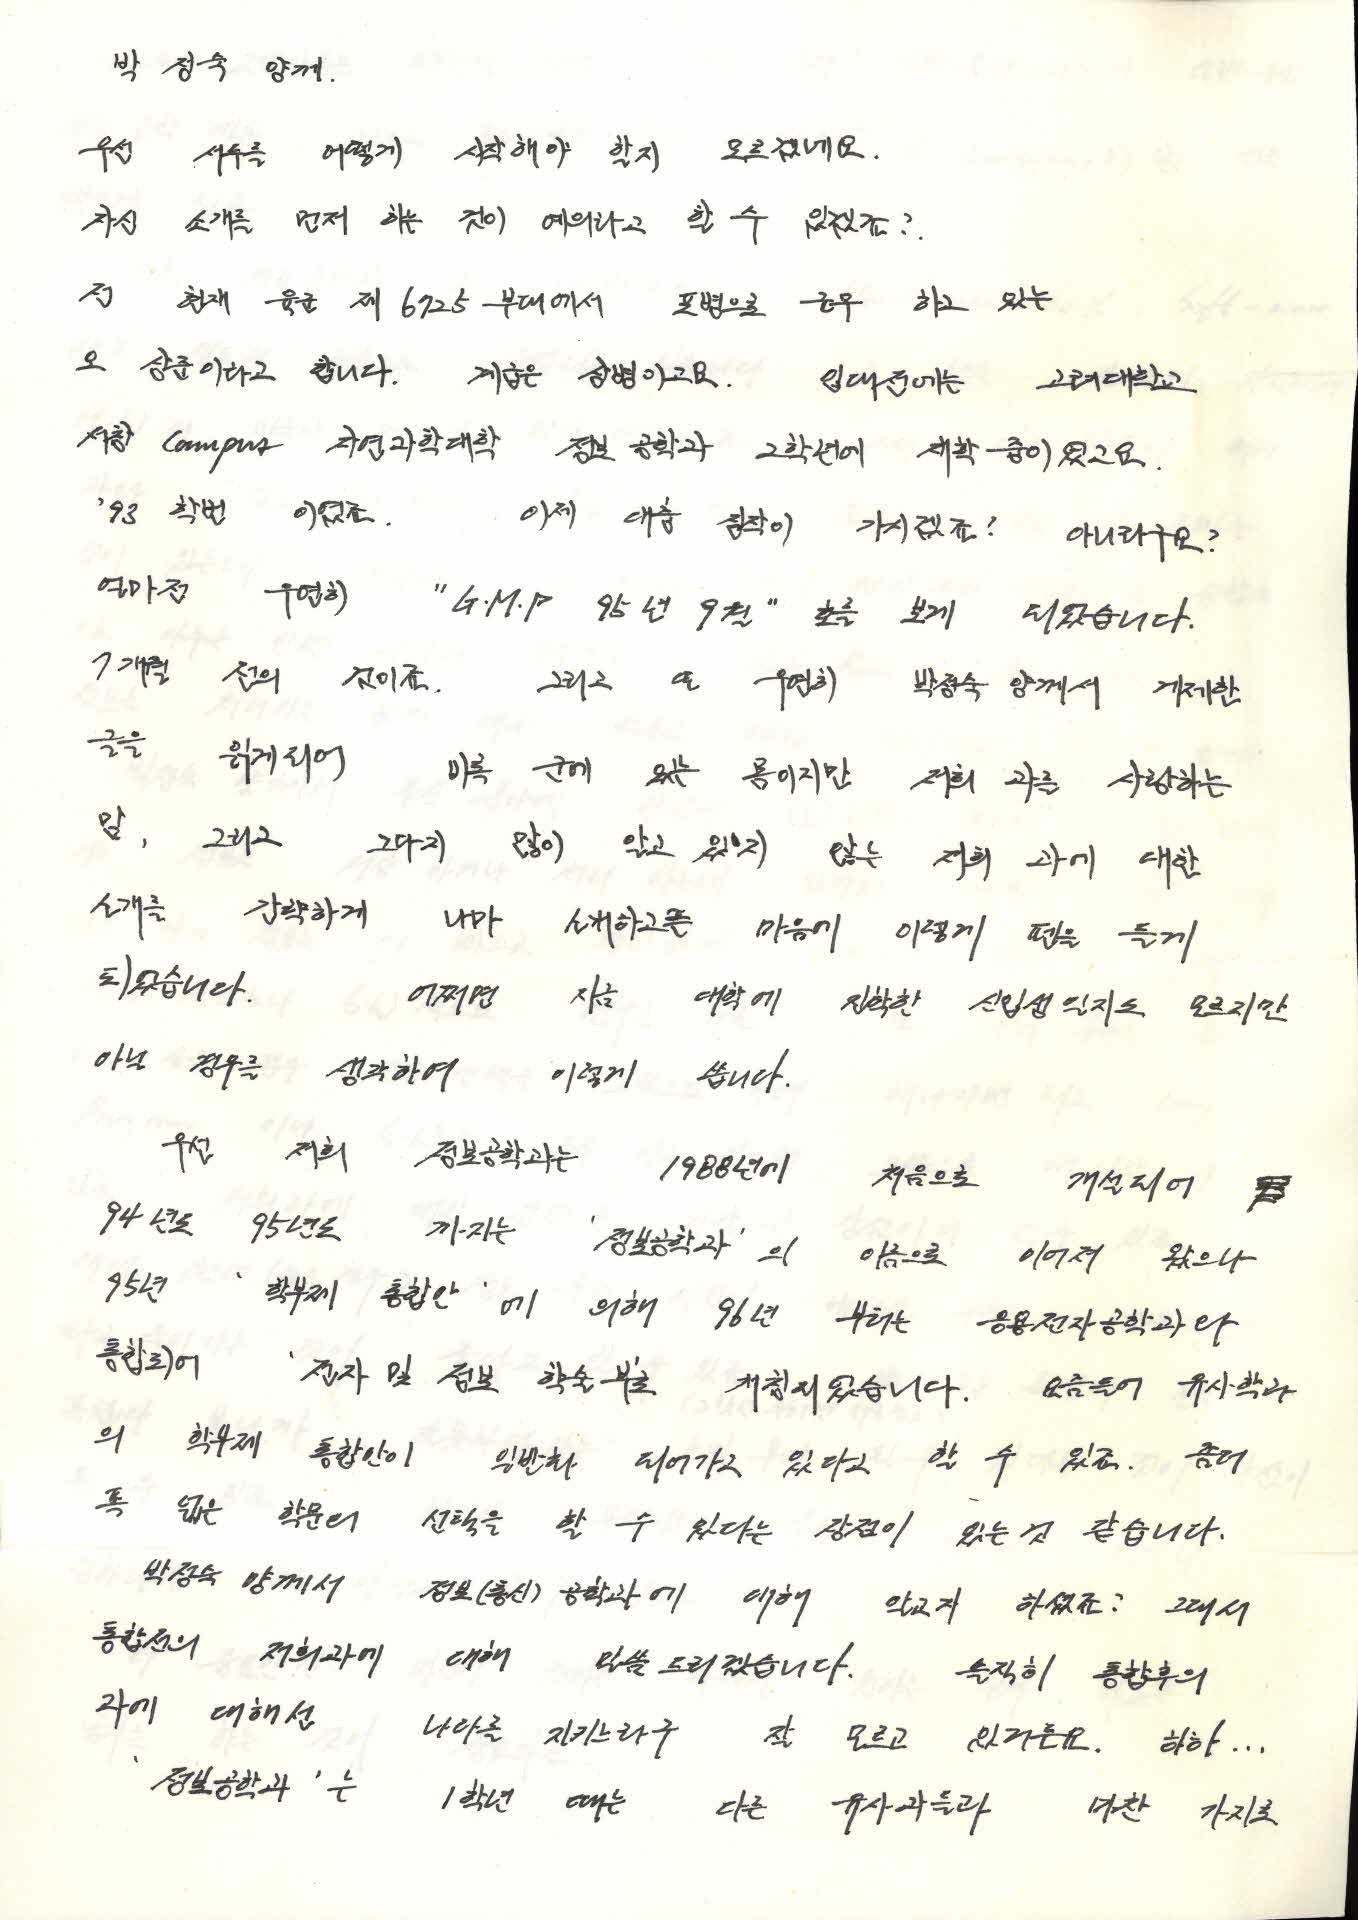 박 정숙 양께.
우선 서두를 어떻게 시작해야 할지 모르겠네요.
자신 소개를 먼저 하는 것이 예의라고 할 수 있겠죠?.
전 현재 육군 제 6725 부대에서 포병으로 근무 하고 있는
오 상준이라고 합니다. 계급은 상병이고요. 입대전에는 고려대학교
서창 Campus 자연과학대학 정보공학과 2학년에 재학 중이었고요.
'93 학번 이었죠. 이제 대충 짐작이 가시겠죠? 아니라구요?
얼마전 우연히 "G.M.P 95년 9월" 호를 보게 되었습니다.
7개월 전의 것이죠. 그리고 또 우연히 박정숙 양께서 게제한
글을 읽게되어 비록 군에 있는 몸이지만 저희 과를 사랑하는
맘, 그리고 그다지 많이 알고 있지 않는 저희 과에 대한
소개를 간략하게 나마 소개하고픈 마음에 이렇게 펜을 들게
되었습니다. 어쩌면 지금 대학에 진학한 신입생 일지도 모르지만
아닌 경우를 생각하여 이렇게 씁니다.
우선 저희 정보공학과는 1988년에 처음으로 개설되어
94년도 95년도 까지는 '정보공학과'의 이름으로 이어져 왔으나
95년 '학부제 통합안'에 의해 96년 부터는 응용전자공학과와
통합되어 '전자 및 정보 학술부'로 개칭되었습니다. 요즘들어 유사학과
의 학부제 통합안이 일반화 되어가고 있다고 할 수 있죠. 좀더
폭 넓은 학문의 선택을 할 수 있다는 장점이 있는것 같습니다.
박정숙 양께서 정보(통신)공학과에 대해 알고자 하셨죠? 그래서
통합전의 저희과에 대해 말씀드리겠습니다. 솔직히 통합후의
과에 대해선 나라를 지키느라구 잘 모르고 있거든요. 하하...
'정보공학과'는 1학년 때는 다른 유사과들과 마찬 가지로